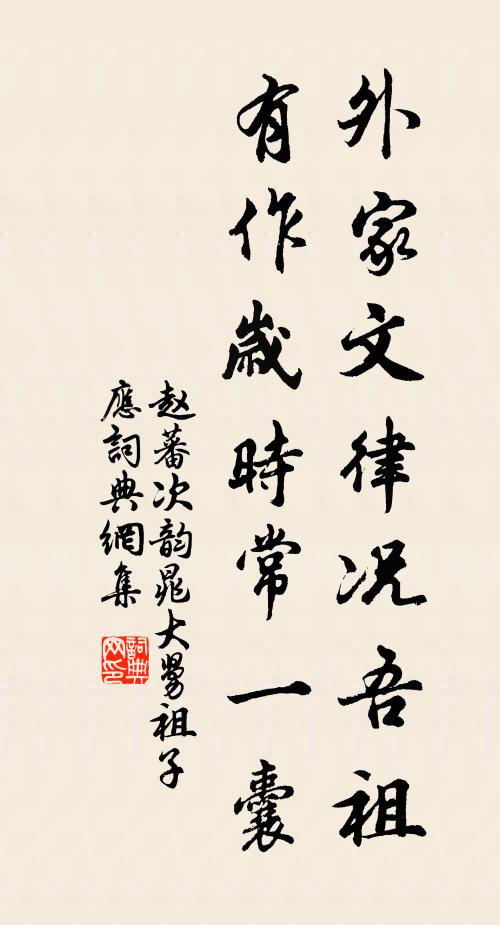 外家文律况吾祖
有作歲時常一囊
赵蕃次韵晁大舅祖子
應詞典網集
詞典网印